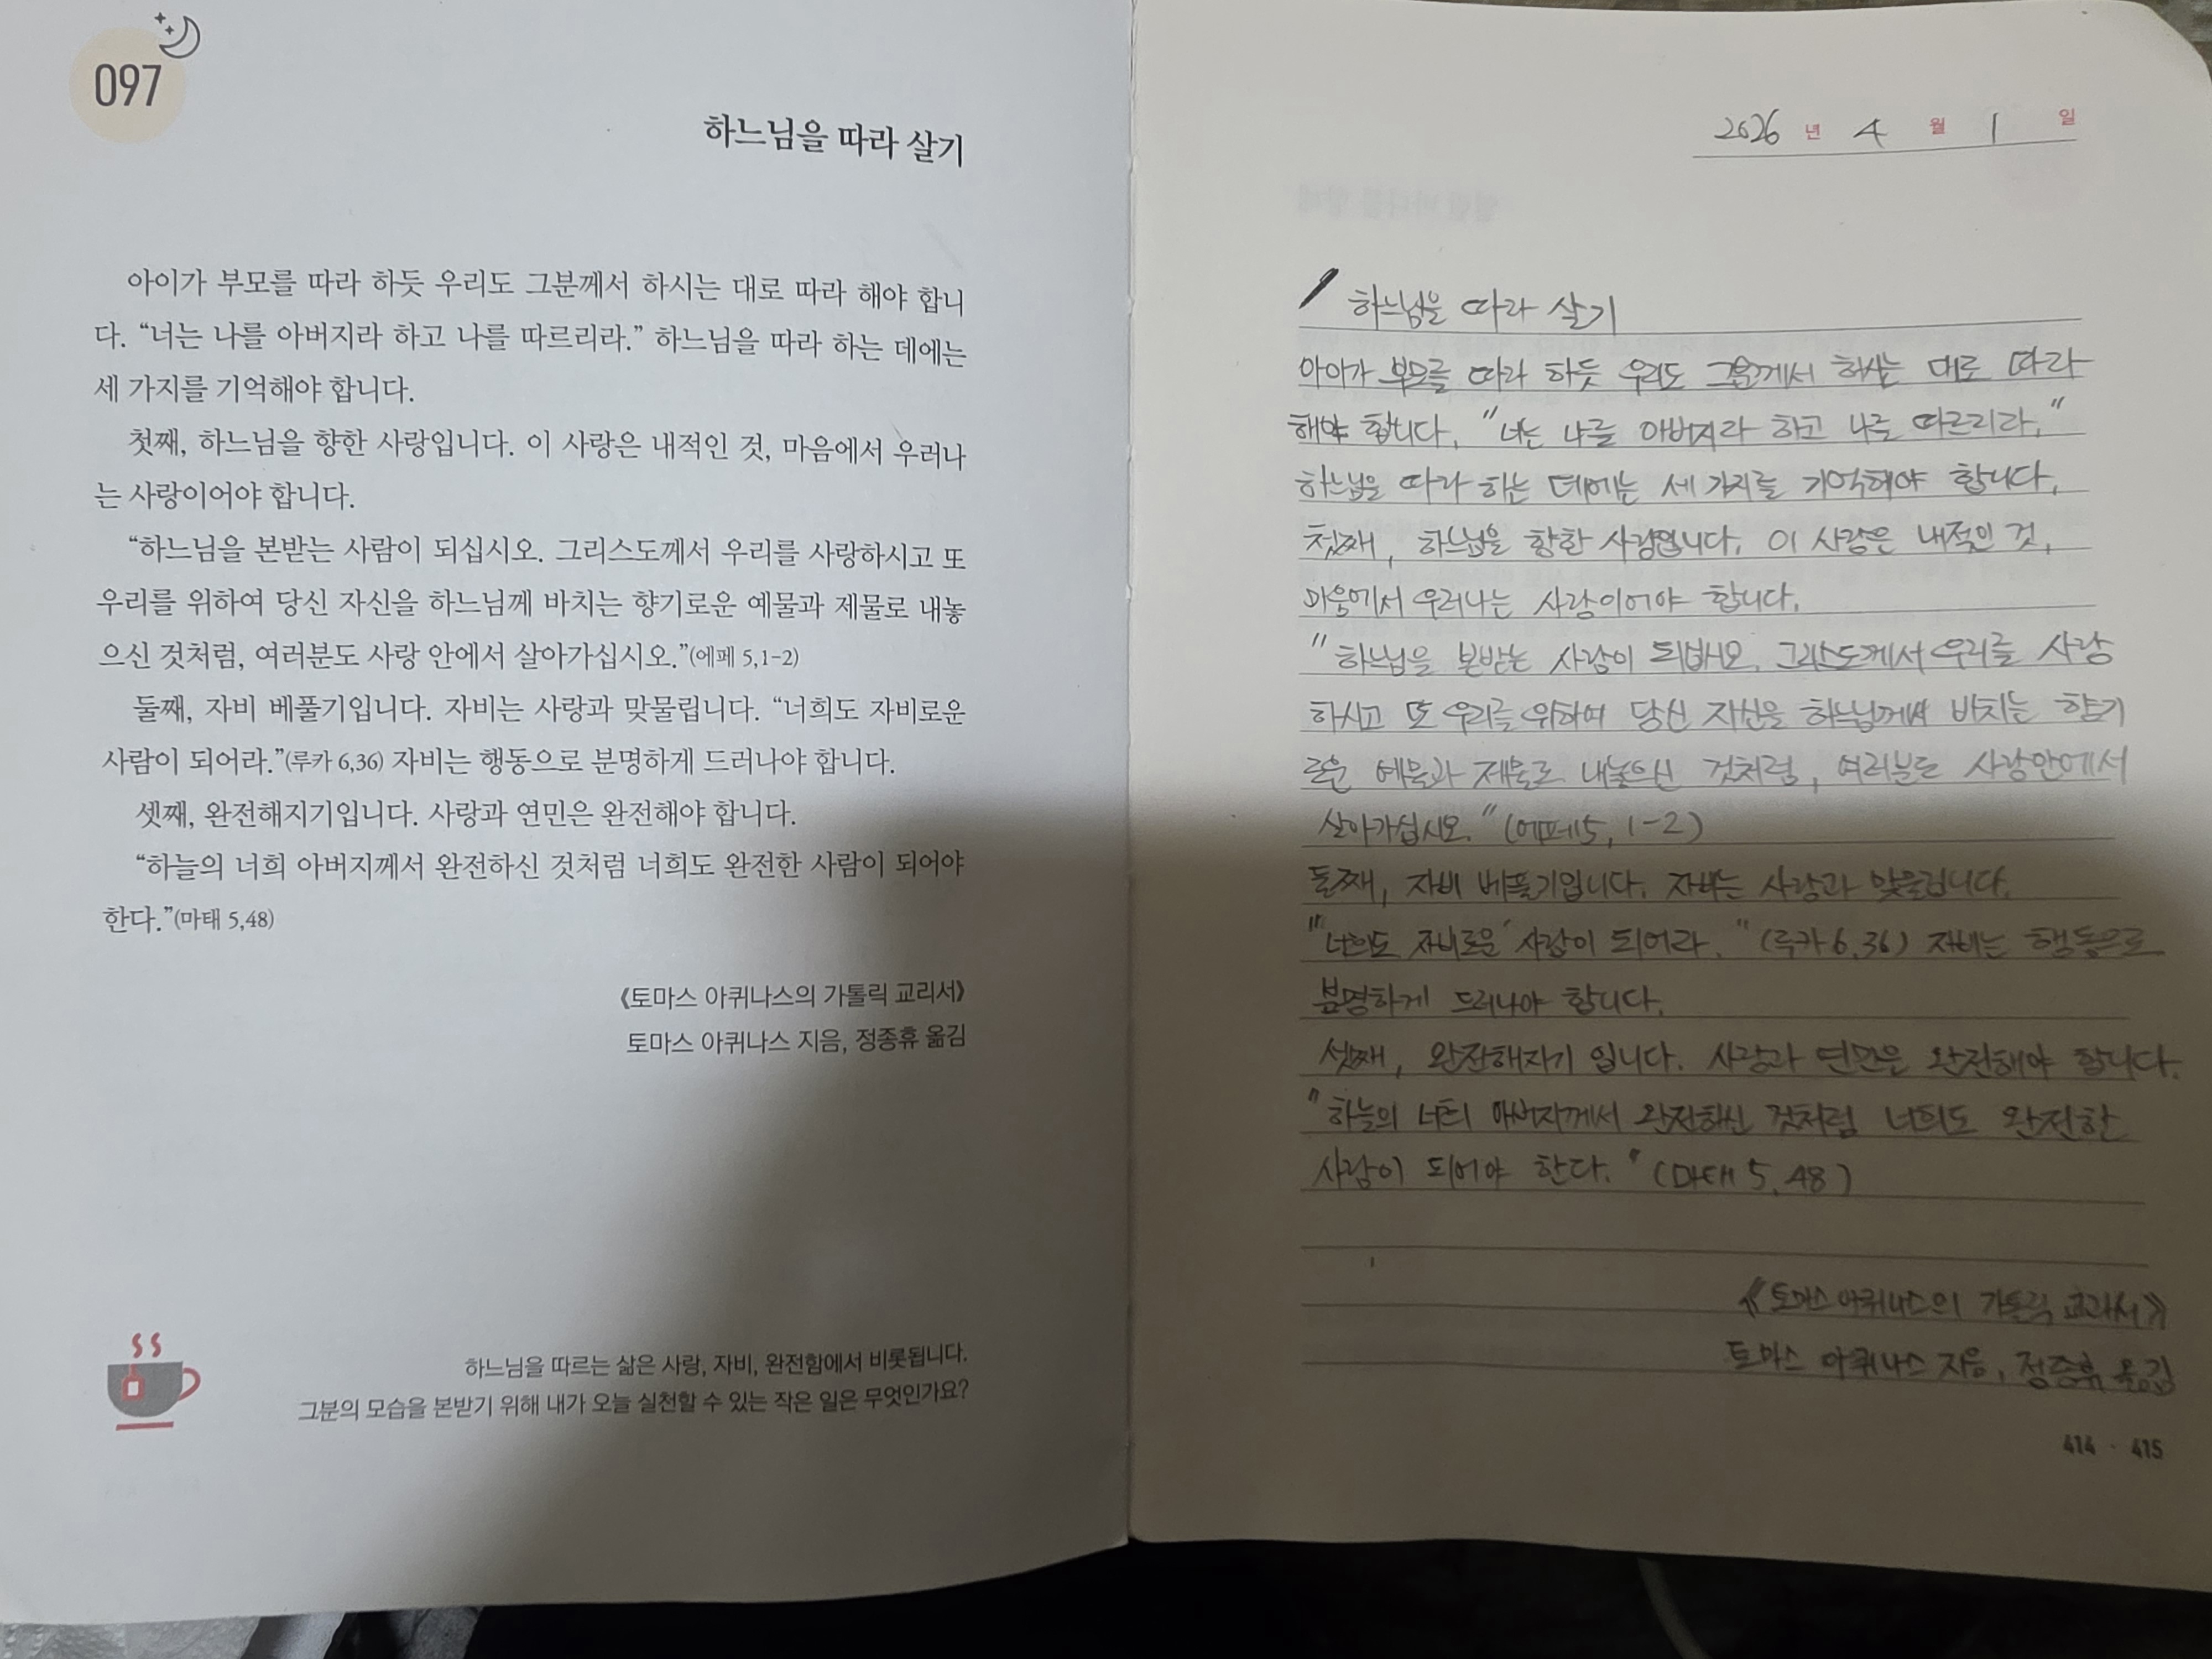 097
하느님을 따라 살기
아이가 부모를 따라 하듯 우리도 그분께서 하시는 대로 따라 해야 합니
다. “너는 나를 아버지라 하고 나를 따르리라.” 하느님을 따라 하는 데에는
세 가지를 기억해야 합니다.
첫째, 하느님을 향한 사랑입니다. 이 사랑은 내적인 것, 마음에서 우러나
는 사랑이어야 합니다.
“하느님을 본받는 사람이 되십시오. 그리스도께서 우리를 사랑하시고 또
우리를 위하여 당신 자신을 하느님께 바치는 향기로운 예물과 제물로 내놓
으신 것처럼, 여러분도 사랑 안에서 살아가십시오.”(에페 5,1-2)
둘째, 자비 베풀기입니다. 자비는 사랑과 맞물립니다. “너희도 자비로운
사람이 되어라.”(루카 6,36) 자비는 행동으로 분명하게 드러나야 합니다.
셋째, 완전해지기입니다. 사랑과 연민은 완전해야 합니다.
“하늘의 너희 아버지께서 완전하신 것처럼 너희도 완전한 사람이 되어야
한다.”(마태 5,48)
《토마스 아퀴나스의 가톨릭 교리서》
토마스 아퀴나스 지음, 정종휴 옮김
하느님을 따르는 삶은 사랑, 자비, 완전함에서 비롯됩니다.
그분의 모습을 본받기 위해 내가 오늘 실천할 수 있는 작은 일은 무엇인가요?
2026 년 4 월 1 일
하느님을 따라 살기
아이가 부모를 따라 하듯 우리도 그분께서 하시는 대로 따라
해야 합니다. "너는 나를 아버지라 하고 나를 따르리라."
하느님을 따라 하는 데에는 세 가지를 기억해야 합니다.
첫째, 하느님을 향한 사랑입니다. 이 사랑은 내적인 것,
마음에서 우러나는 사랑이어야 합니다.
"하느님을 본받는 사람이 되십시오. 그리스도께서 우리를 사랑
하시고 또 우리를 위하여 당신 자신을 하느님께 바치는 향기
로운 예물과 제물로 내놓으신 것처럼, 여러분도 사랑안에서
살아가십시오." (에페 5, 1-2)
둘째, 자비 베풀기입니다. 자비는 사랑과 맞물립니다.
"너희도 자비로운 사람이 되어라." (루카 6,36) 자비는 행동으로
분명하게 드러나야 합니다.
셋째, 완전해지기 입니다. 사랑과 연민은 완전해야 합니다.
"하늘의 너희 아버지께서 완전하신 것처럼 너희도 완전한
사람이 되어야 한다." (마태 5,48)
《토마스 아퀴나스의 가톨릭 교리서》
토마스 아퀴나스 지음, 정종휴 옮김
414 · 415